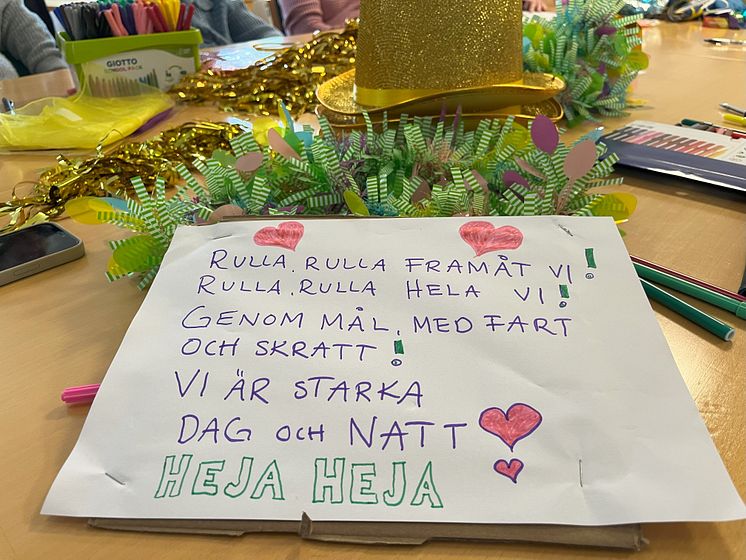 GIOTTO
RULLA. RULLA FRAMÅT VI!
RULLA. RULLA HELA VI!
GENOM MÅL. MED FART
OCH SKRATT!
VI ÄR STARKA
DAG OCH NATT
HEJA HEJA